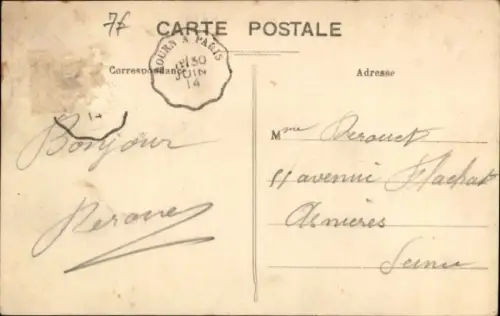 77
CARTE POSTALE
TOURN A PARIS
30
JUIN
14
Correspondance
Adresse
14
Bonjour
Mme Derouet
11 avenue Flachat
Asnières
Seine